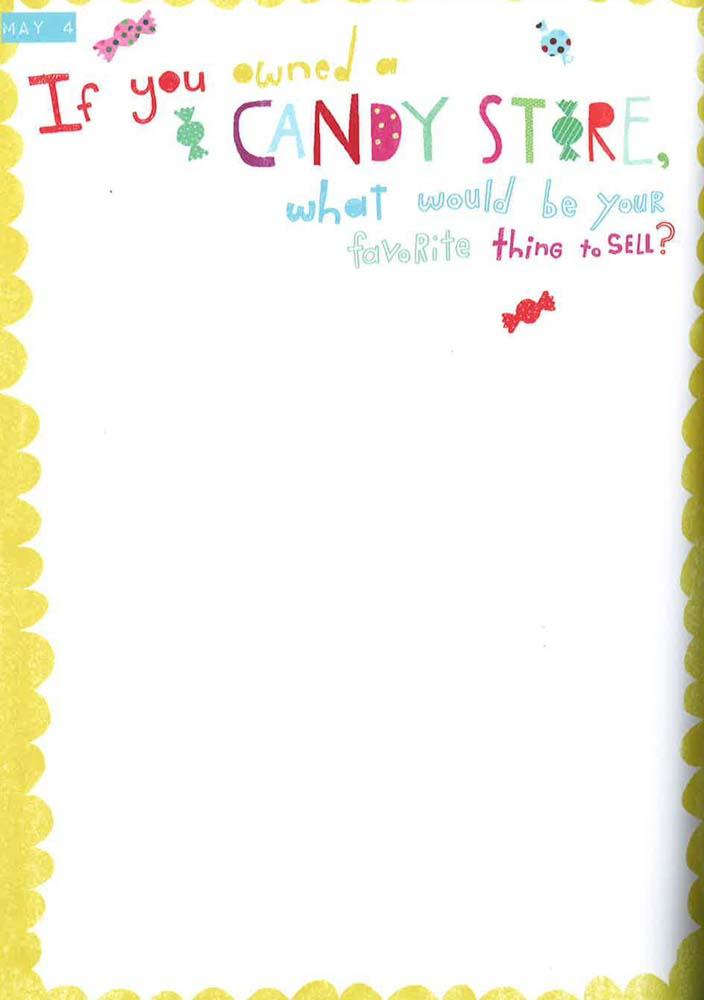 MAY 4
If you owned a
CANDY STORE,
what would be your
favoRite thing to SELL?